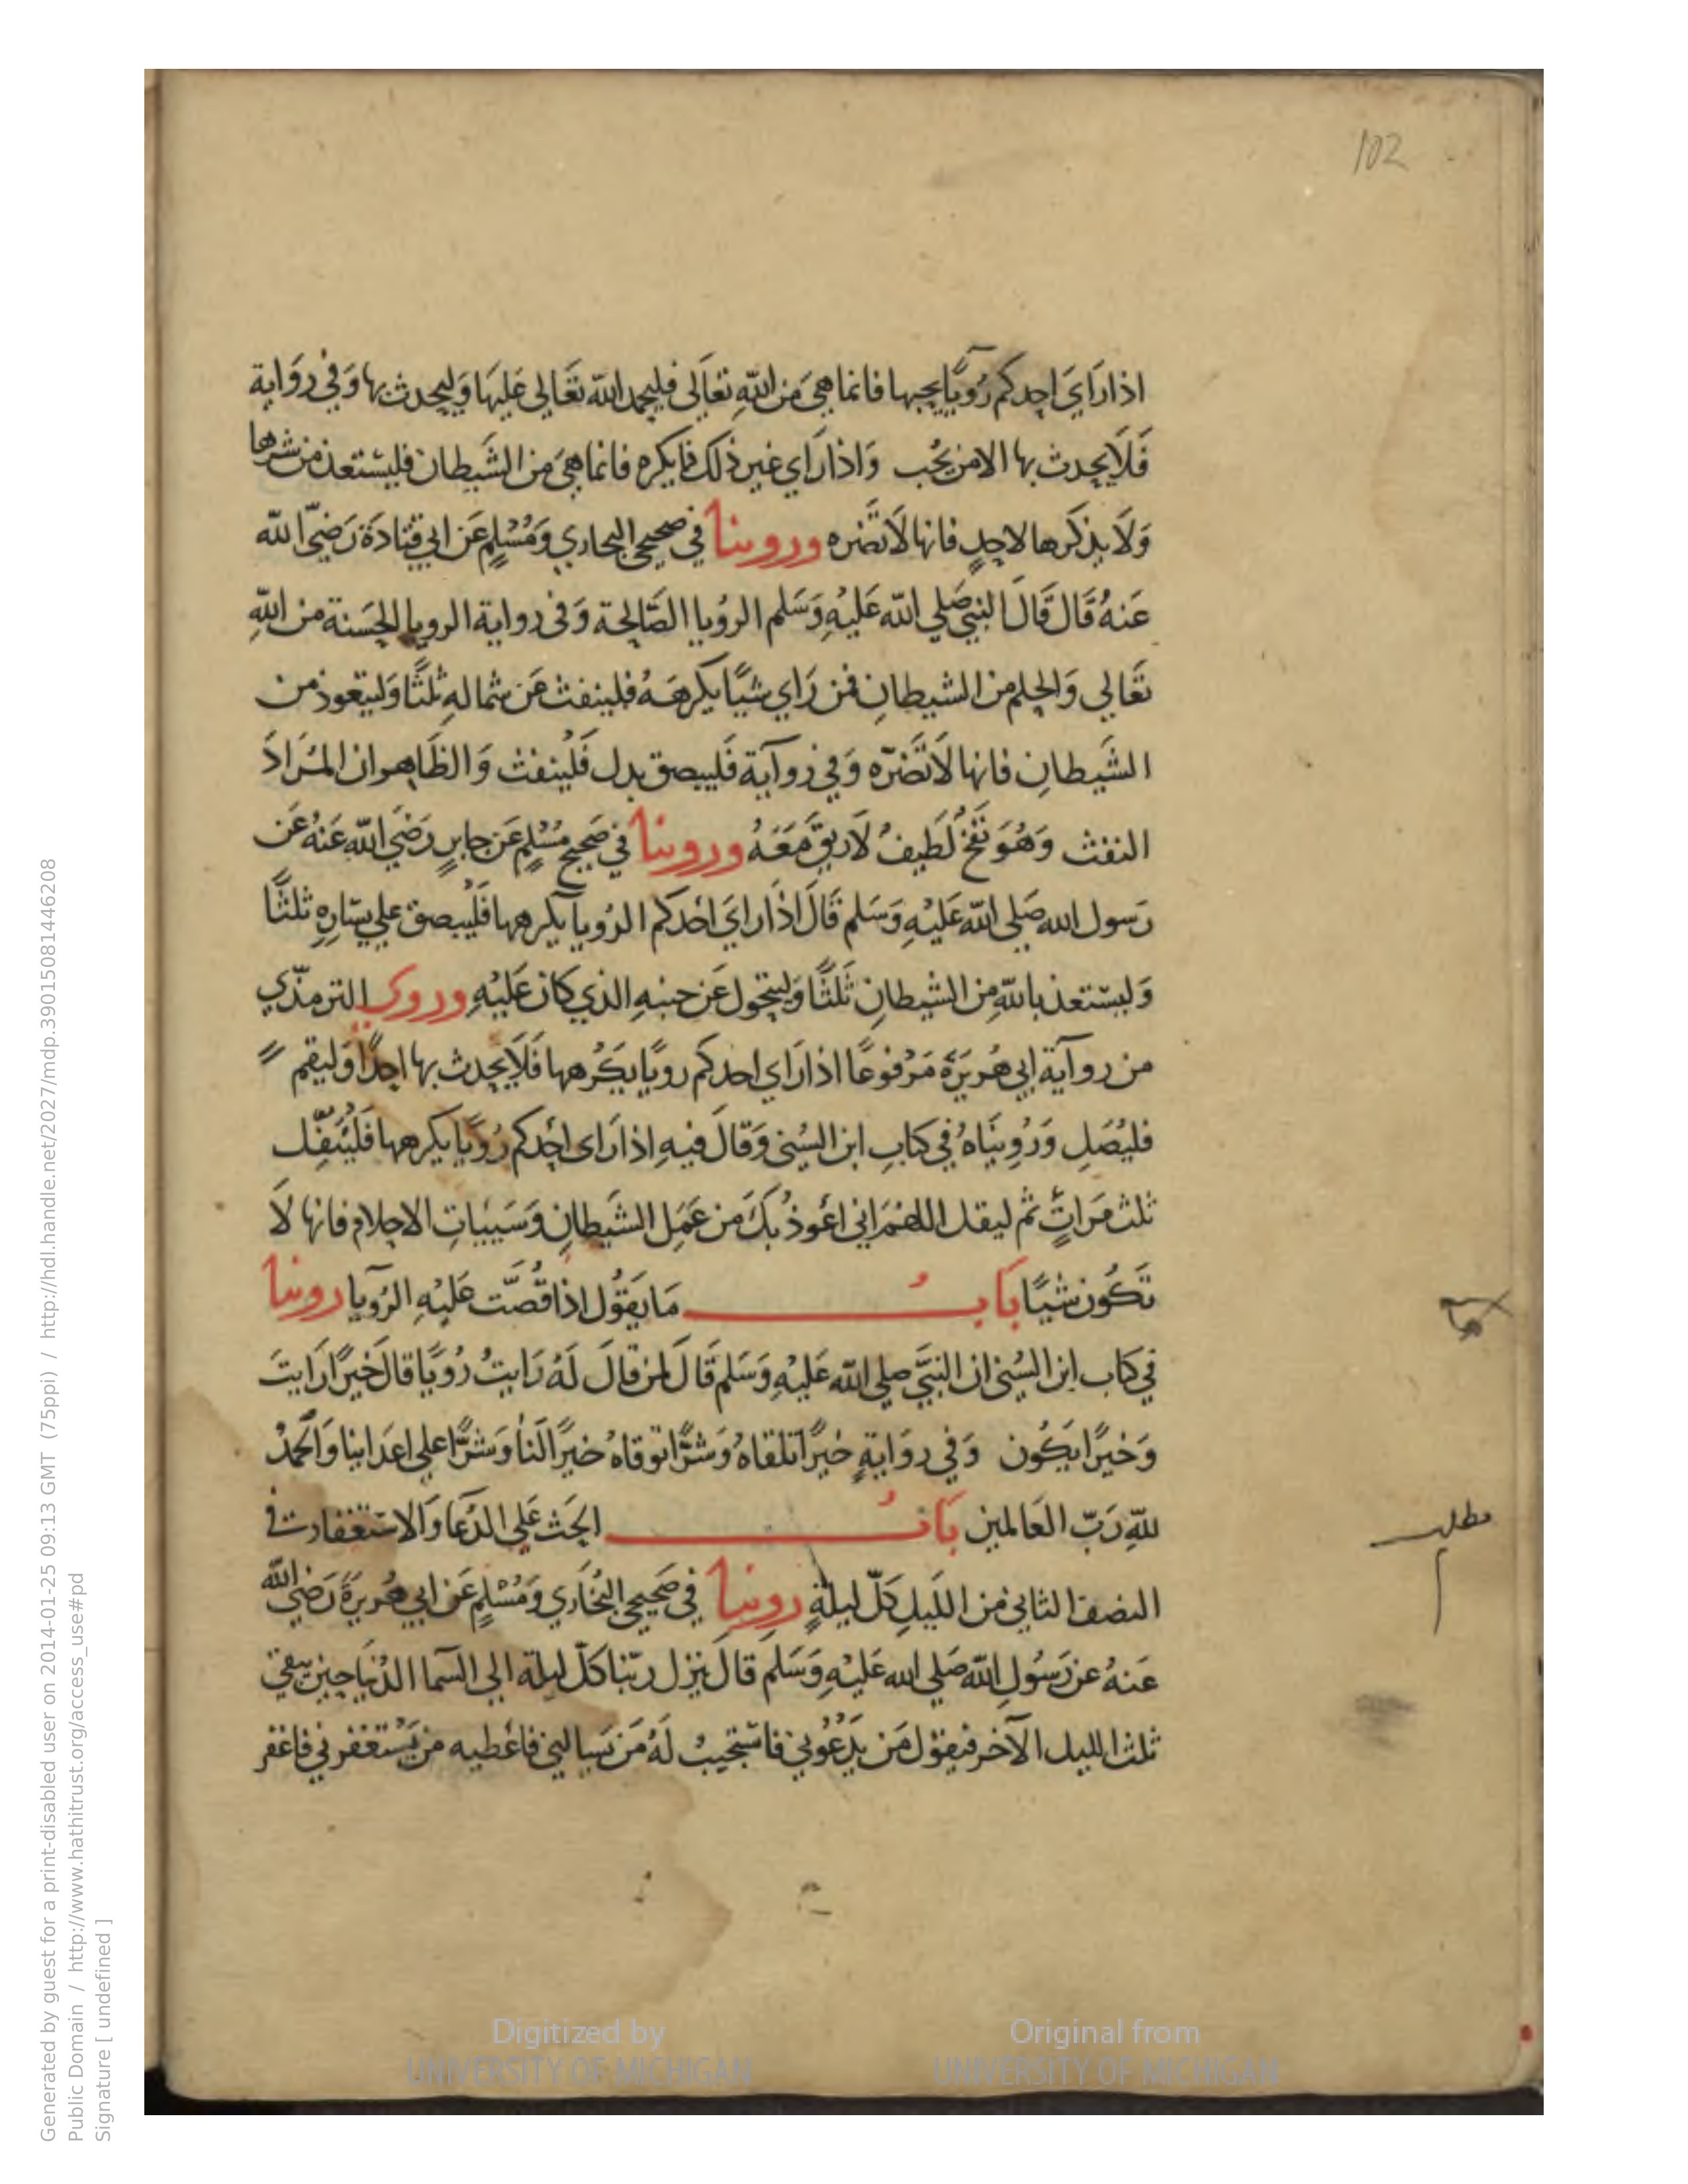 102
اذا رَايَ احدكم رُويًا يحبها فانما هيَ مَن اللّهِ تعَالى فليحمد اللّه تَعَالى عَليهَا وَليحدث بها وَفي روَاية
فَلَا يحدث بها الا من يحُب وَاذا رَاي غير ذلك مما يكره فانما هيَ من الشَيطان فليسْتعذ من شرها
وَلَا يذكرها لاحدٍ فانها لَا تَضره وروينا في صحيحي البخاري وَمُسْلمٍ عَن ابي قتادَة رَضيَ اللّه
عَنهُ قَال قَالَ النبي صَلي اللّه عَليْهِ وَسَلم الرُويا الصَّالحة وَفى رواية الرويا الحسَنة من اللّهِ
تعَالي وَالحلم من الشيطانِ فمن رَاي شيًا يكرهَهُ فلينفث عَن شماله ثلثًا وَليتعوذ من
الشَيطانِ فانها لَا تَضرّه وَفي روآية فَليبصق بدل فَلْينفث وَالظَاهر ان المُرَادَ
النفث وَهُوَ نَفْخٌ لَطيفٌ لَا ريقَ مَعَهُ وروينا في صَحيح مُسْلمٍ عَن جابرٍ رَضيَ اللّه عَنهُ عَن
رَسول الله صَلي اللّه عَليْهِ وَسَلم قَالَ اذَا رَايَ احَدكم الرُويا يكرهها فَلْيبصق علي يسَارِهِ ثلثًا
وَليسْتعذ باللّهِ من الشيطانِ ثَلثًا وَليتحول عَن جنبهِ الذي كان عَليْهِ وروي الترمذي
من روآية ابي هُريرَة مَرْفوعًا اذا رَاي احدكم رويًا يكَرهها فَلَا يحدث بها احدًا وَليقم
فليُصَلِ وَرُوينَاهُ في كتابِ ابن السُني وَقَالَ فيهِ اذا رَاى احَدكم رُويًا يكرهها فَليَتفِل
ثلث مَراتٍ ثم ليقل اللهُمَ اني اعُوذ بكَ من عَمَلِ الشيطانِ وَسَيياتِ الاحلام فانها لَا
تَكُون شيًا بَابُ مَا يَقوُل اذا قُصَّت عَليْهِ الرُويا روينا
في كتاب ابن السُني ان النبيَّ صلي اللّه عَليْهِ وَسَلم قَالَ لمن قالَ لَهُ رَايتُ رُويًا قالَ خَيرًا رَايتَ
وَخيرًا يكُون وَفي روَايةٍ خيرًا تلقاهُ وَشرًّا توقاهُ خيرًا لنَا وَشرًّا علي اعدَاينا وَالحَمدُ
للّهِ رَبّ العَالمين بَابُ الحث عَلي الدُعَا وَالاسْتغفار في
النصف الثاني من الليَلِ كلّ ليلةٍ روينا في صَحيحي البُخَاري وَمُسْلمٍ عَن ابي هُريرَة رَضيَ اللّه
عَنهُ عن رَسُولِ اللّه صَلي الله عَليْهِ وَسَلم قالَ ينزل ربّنا كلّ ليلة الي السّما الدُنيَا حين يبقي
ثلث الليل الآخر فيقوُل مَن يَدْعُوني فاسْتجيبُ لَهُ مَن يَسالني فاعُطيه من يَسْتغفرني فاغفر
مطلب
Digitized by
UNIVERSITY OF MICHIGAN
Original from
UNIVERSITY OF MICHIGAN
Generated by guest for a print-disabled user on 2014-01-25 09:13 GMT (75ppi) / http://hdl.handle.net/2027/mdp.39015081446208
Public Domain / http://www.hathitrust.org/access_use#pd
Signature [ undefined ]